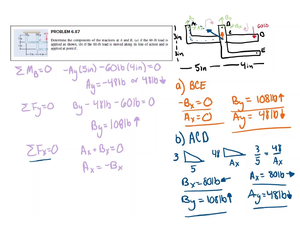 PROBLEM 6.87
Determine the components of the reactions at A and E, (a) if the 60-lb load is
applied as shown, (b) if the 60-lb load is moved along its line of action and is
applied at point
ΣM_B=0
-Ay(5in)-60lb(4in)=0
Ay=-48lb or 48lb↓
ΣFy=0
By-48lb-60lb=0
By=108lb↑
ΣFx=0
Ax+Bx=0
Ax=-Bx
A
B
60lb
D
E
5in
4in
a) BCE
-Bx=0
Ax=0
By=108lb↑
Ay=48lb↓
b) ACD
3
5
48
Ax
3/5=48/Ax
Bx=80lb
Ax=80lb
By=108lb↑
Ay=48lb↓